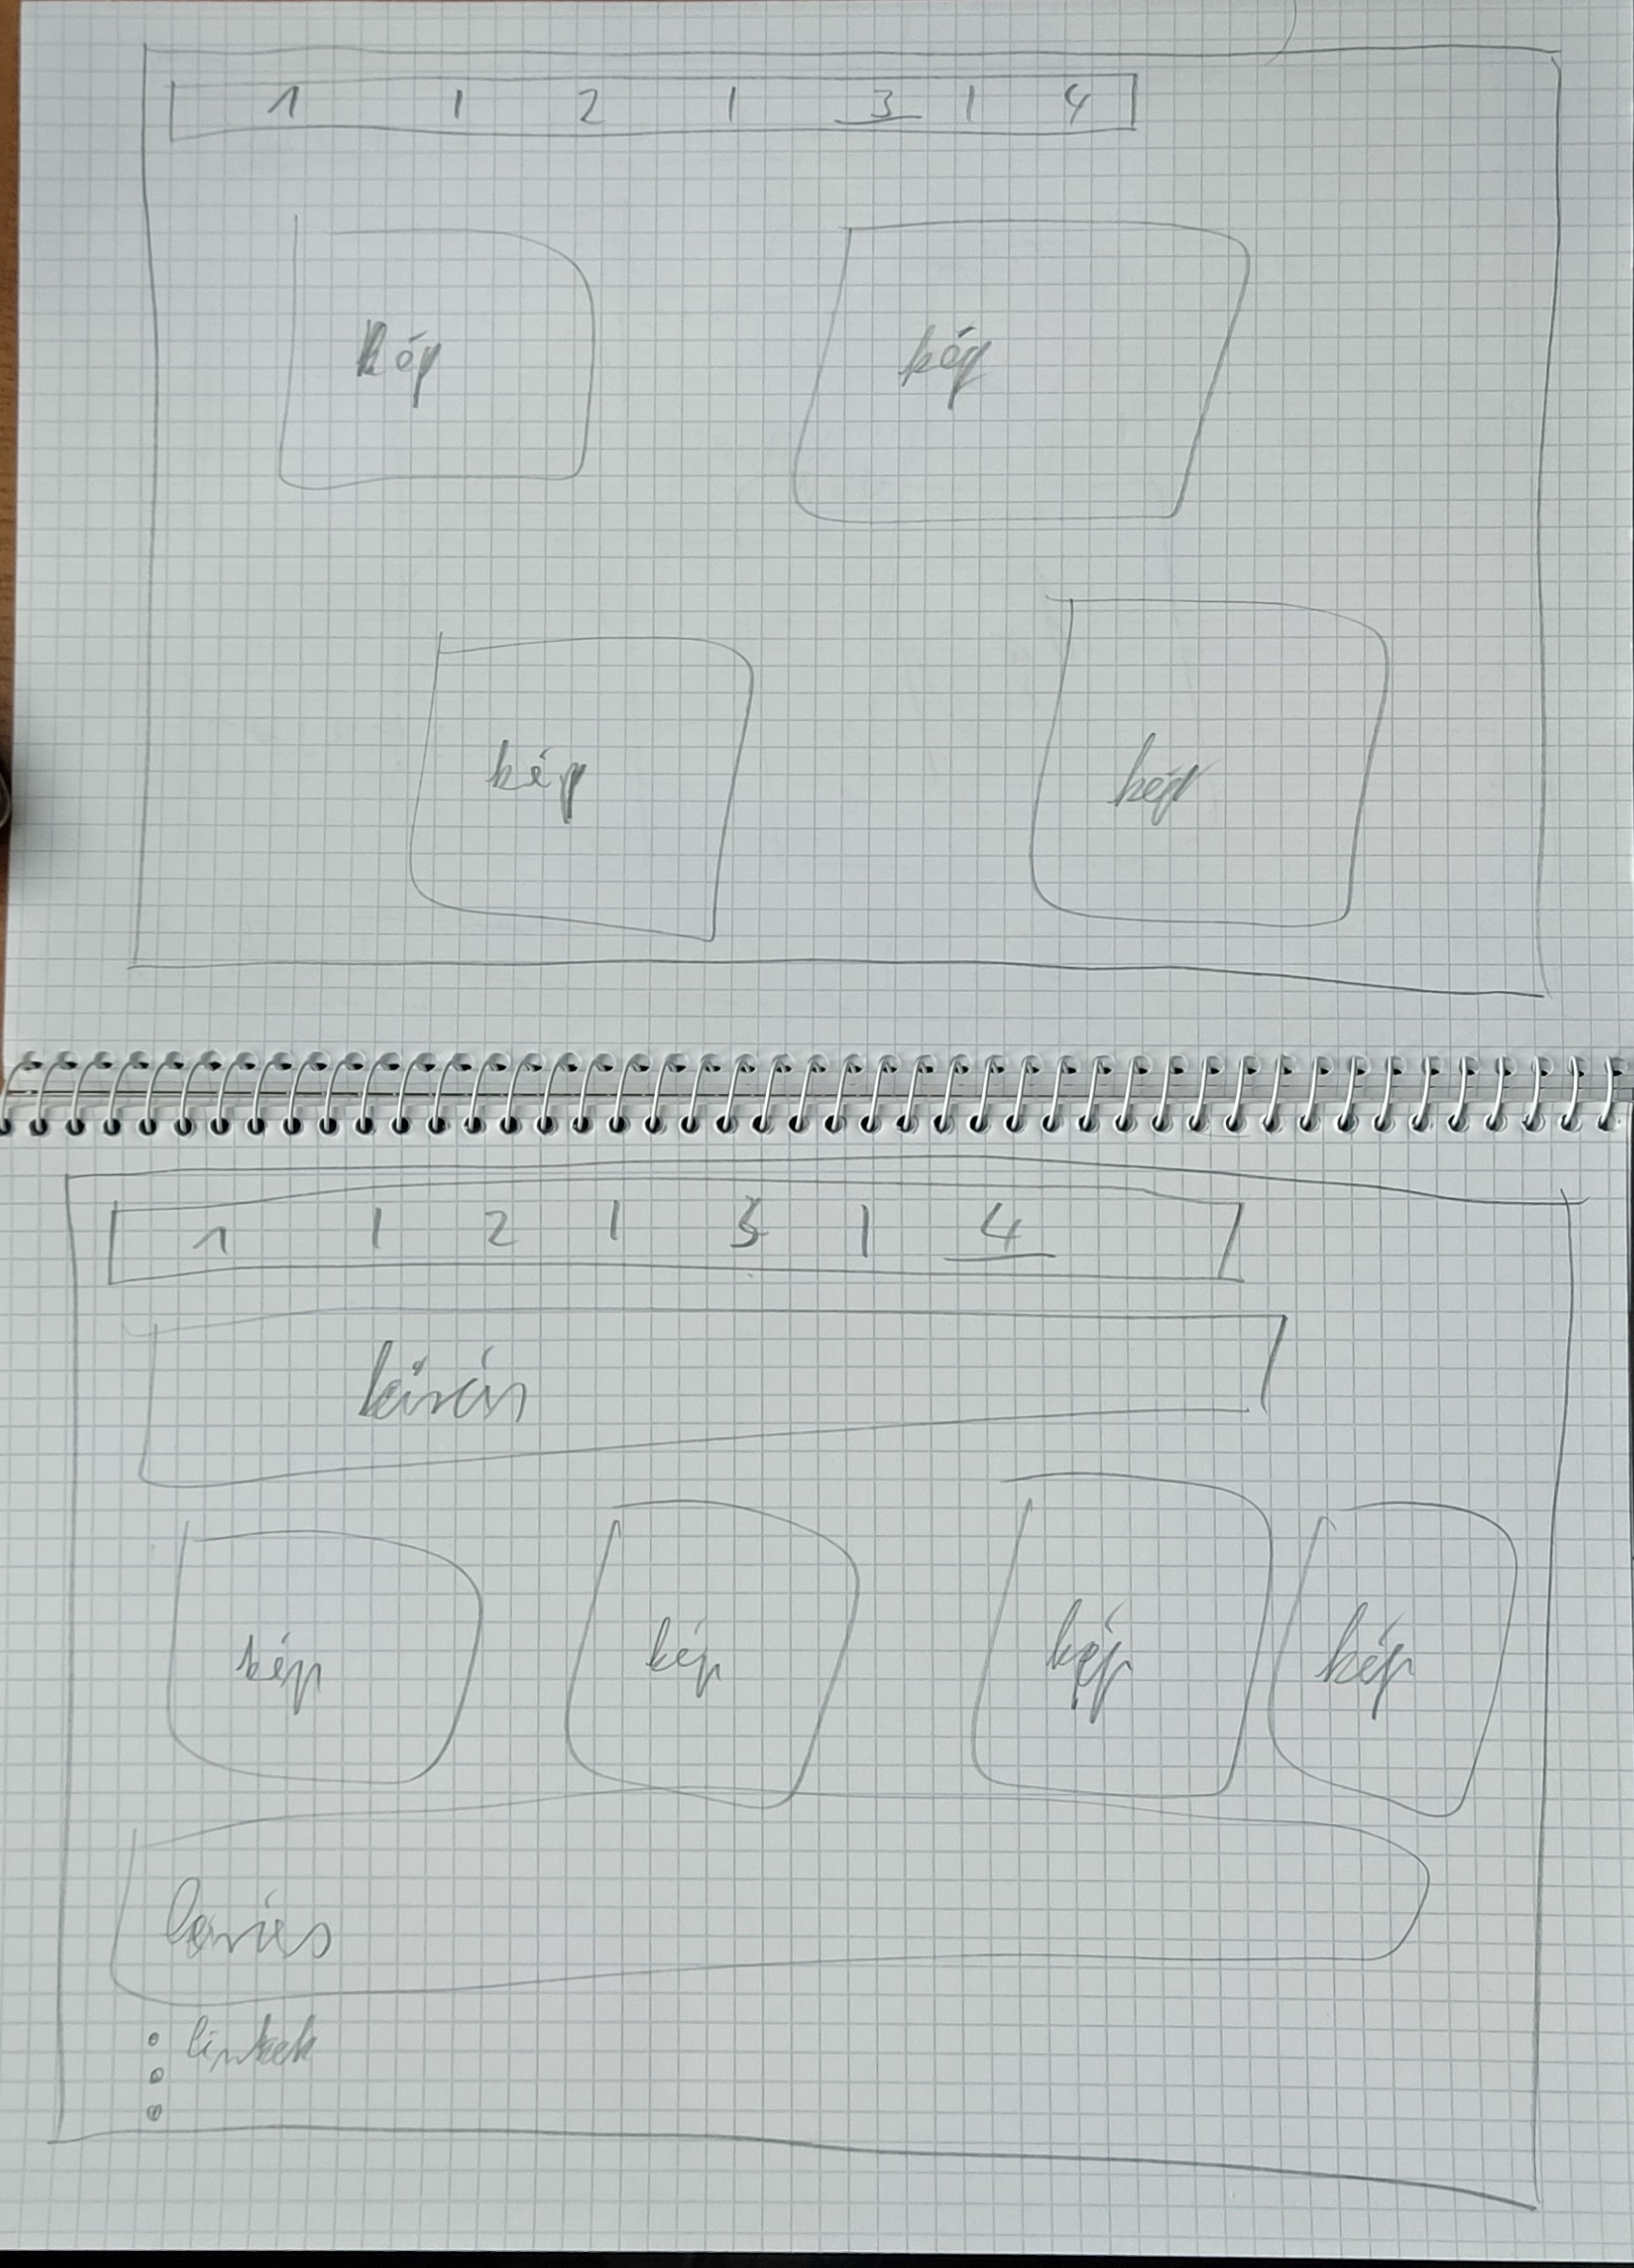 1 | 2 | 3 | 4
kép kép
kép kép
1 | 2 | 3 | 4
kép kép kép kép
leírás
linkek